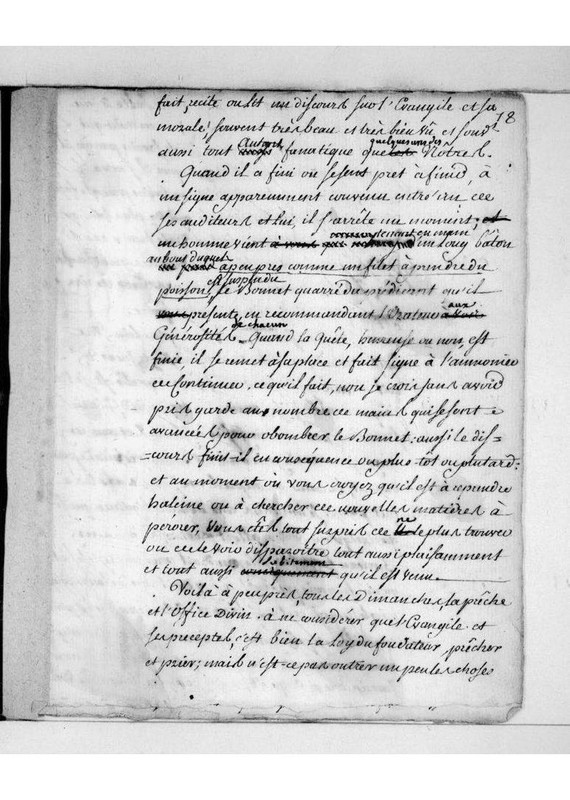 fait, recite ou lit un discours sur l'Evangile et sa
18
morale; souvent très beau et très bien vû, et souvt.
aussi tout autant fanatique que quelques uns des Nôtres.
Quand il a fini ou se sent pret à finir, à
un signe apparemment convenu entre un de
ses auditeurs et lui, il s'arrête un moment, et
un homme vient tenant en main un long bâton
au bout duquel
apeuprès comme un filet à prendre du
poisson, est suspendu le Bonnet quarré du prédicant qu'il
presente, en recommandant l'Orateur aux
Générosités de chacun. Quand la Quête, heureuse ou non, est
finie il se remet à sa place et fait signe à l'aumonier
de Continuer, ce qu'il fait, non je crois sans avoir
pris garde au nombre de mains qui se sont
avancées pour obombrer le Bonnet: aussi le dis=
=cours finit-il en conséquence ou plus-tôt ou plutard:
et au moment où vous croyez qu'il est à reprendre
haleine ou à chercher de nouvelles matières à
perorer, Vous êtes tout surpris de ne le plus trouver
ou de le voir disparoître tout aussi plaisamment
et tout aussi subitement qu'il est venu.
Voilà à peu près, tous les Dimanches, la prêche
et l'Office Divin. à ne considérer que l'Evangile et
ses preceptes, c'est bien la Loy du fondateur, prêcher
et prier; mais n'est-ce pas outrer un peu les choses